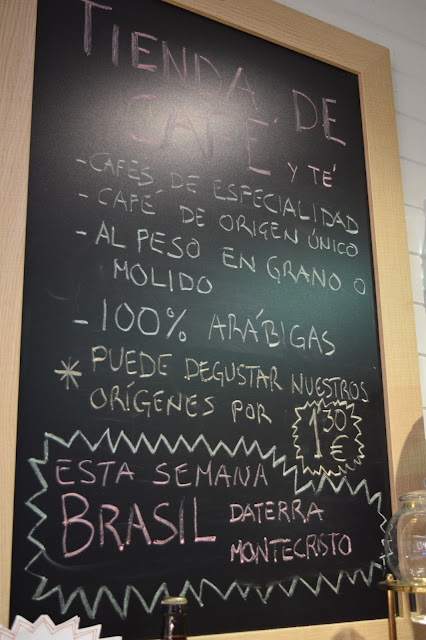 TIENDA DE
CAFÉ Y TÉ
- CAFÉS DE ESPECIALIDAD
- CAFÉ DE ORIGEN ÚNICO
- AL PESO EN GRANO O
MOLIDO
- 100% ARÁBIGAS
* PUEDE DEGUSTAR NUESTROS
ORÍGENES POR 1'30 €
ESTA SEMANA
BRASIL DATERRA
MONTECRISTO